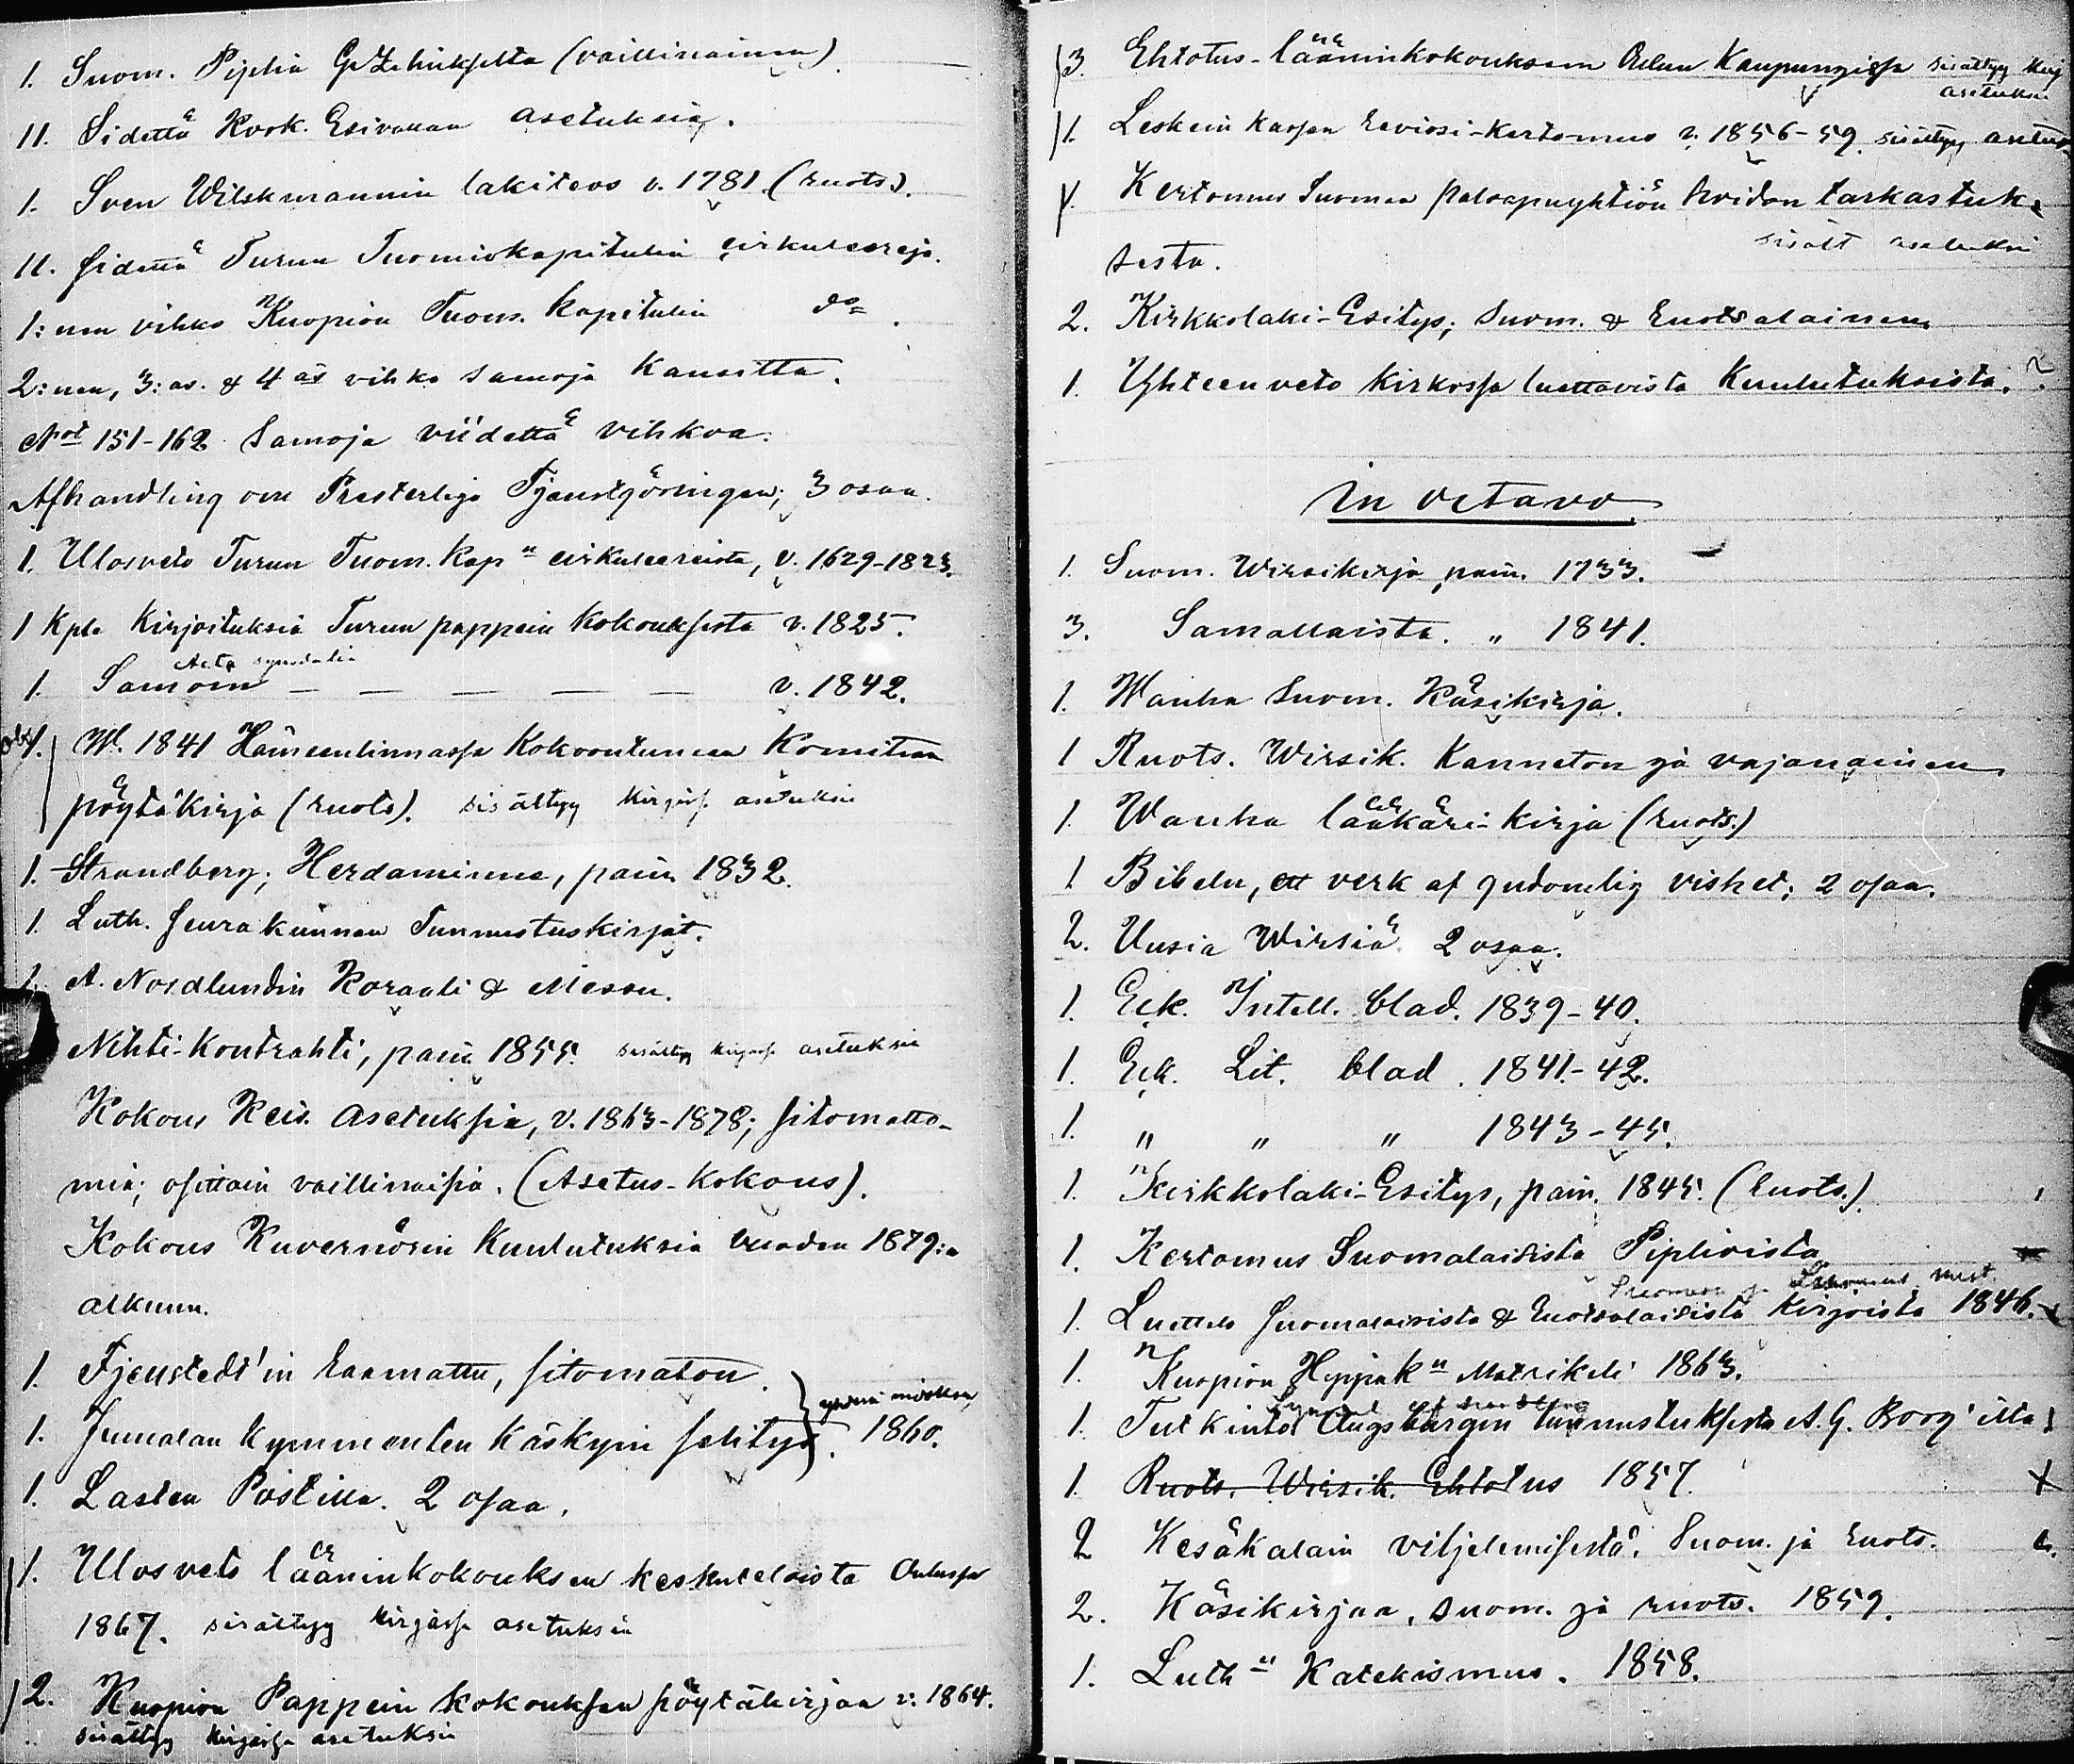 1. Suom. Piplia (vaillinainen)
11. Sidettä Kork. Esivallan asetuksia.
1. Sven Wilskmannin lakiteos v. 1781. (ruots).
11. Sidettä Turun Tuomiokapitulin cirkuleereja.
1:nen vihko Kuopion Tuom. Kapitulin do
2:nen, 3:as. & 4 äs vihko samoja Kansitta.
No 151-162 Samoja viidettä vihkoa.
Afhandling om Presterliga Tjenstgöringen; 3 osaa.
1. Ulosveto Turun Tuom. Kap:n cirkuleereista, v. 1629-1823.
1 Kpl. Kirjoituksia Turun pappein Kokouksesta v. 1825.
Acta synodalia
1. Samoin — — — — — v. 1842.
1. W. 1841 Hämeenlinnassa Kokoontuneen Komitean
pöytäkirja (ruots). sisältyy kirjass. asetuksia
1. Strandberg; Herdaminne, pain. 1832.
1. Luth. Seurakunnan Tunnustuskirjat.
1. A. Nordlundin Koraali & Messu.
Nihti-Kontrahti, pain. 1855. sisältyy kirjassa asetuksia
Kokous Keis. Asetuksia, v. 1863-1878; sitomatto-
mia; osittain vaillinaisia. (Asetus-Kokous).
Kokous Kuvernörin Kuulutuksia vuoden 1879:n
alkuun.
1. Fjenstedt'in Raamattu, sitomaton.
1. Jumalan Kymmenten Käskyin selitys. 1860.
1. Lasten Postilla. 2 osaa.
1. Ulosveto lääninkokouksen keskuteloista Oulussa
1867. sisältyy kirjassa asetuksia
2. Kuopion Pappein Kokouksen pöytäkirjaa v. 1864.
sisältyy kirjassa asetuksia
3. Ehtotus-lääninkokouksen Oulun Kaupungissa sisältyy kirj
asetuksia
1. Leskein kassan revisi-Kertomus v. 1856-59. sisältyy asetus
1. Kertomus Suomen paloapuyhtiön hoidon tarkastuk-
sisält asetuksi
sesta.
2. Kirkkolaki-Esitys; Suom. & Ruotsalainen
1. Yhteenveto Kirkossa luettavista Kuulutuksista. ?
In octavo.
1. Suom. Wirsikirja pain. 1733.
3. Samallaista. " 1841.
1. Wanha Suom. Käsikirja.
1 Ruots. Wirsik. Kanneton ja vajanainen
1. Wanha lääkäri-kirja (ruots.)
1 Bibeln, ett verk af gudomlig vishet; 2 osaa.
2. Uusia Wirsiä. 2 osaa.
1. Eck. Intell. blad. 1839-40.
1. Eck. Lit. blad. 1841-42.
1. " " " 1843-45.
1. Kirkkolaki-Esitys, pain. 1845. (Ruots.)
1. Kertomus Suomalaisista Piplioista
1. Luettelo Suomalaisista & Ruotsalaisista Kirjoista 1846.
1. Kuopion Hiippak:n Matrikeli 1863.
1. Tutkintot Augsburgin tunnustuksesta A. G. Borg'ilta
1 Ruots. Wirsik. Ehtotus 1857. x
2 Kesäkalain viljelemisestä. Suom. ja Ruots.
2. Käsikirjaa, suom. ja ruots. 1859.
1. Luth:n Katekismus. 1858.